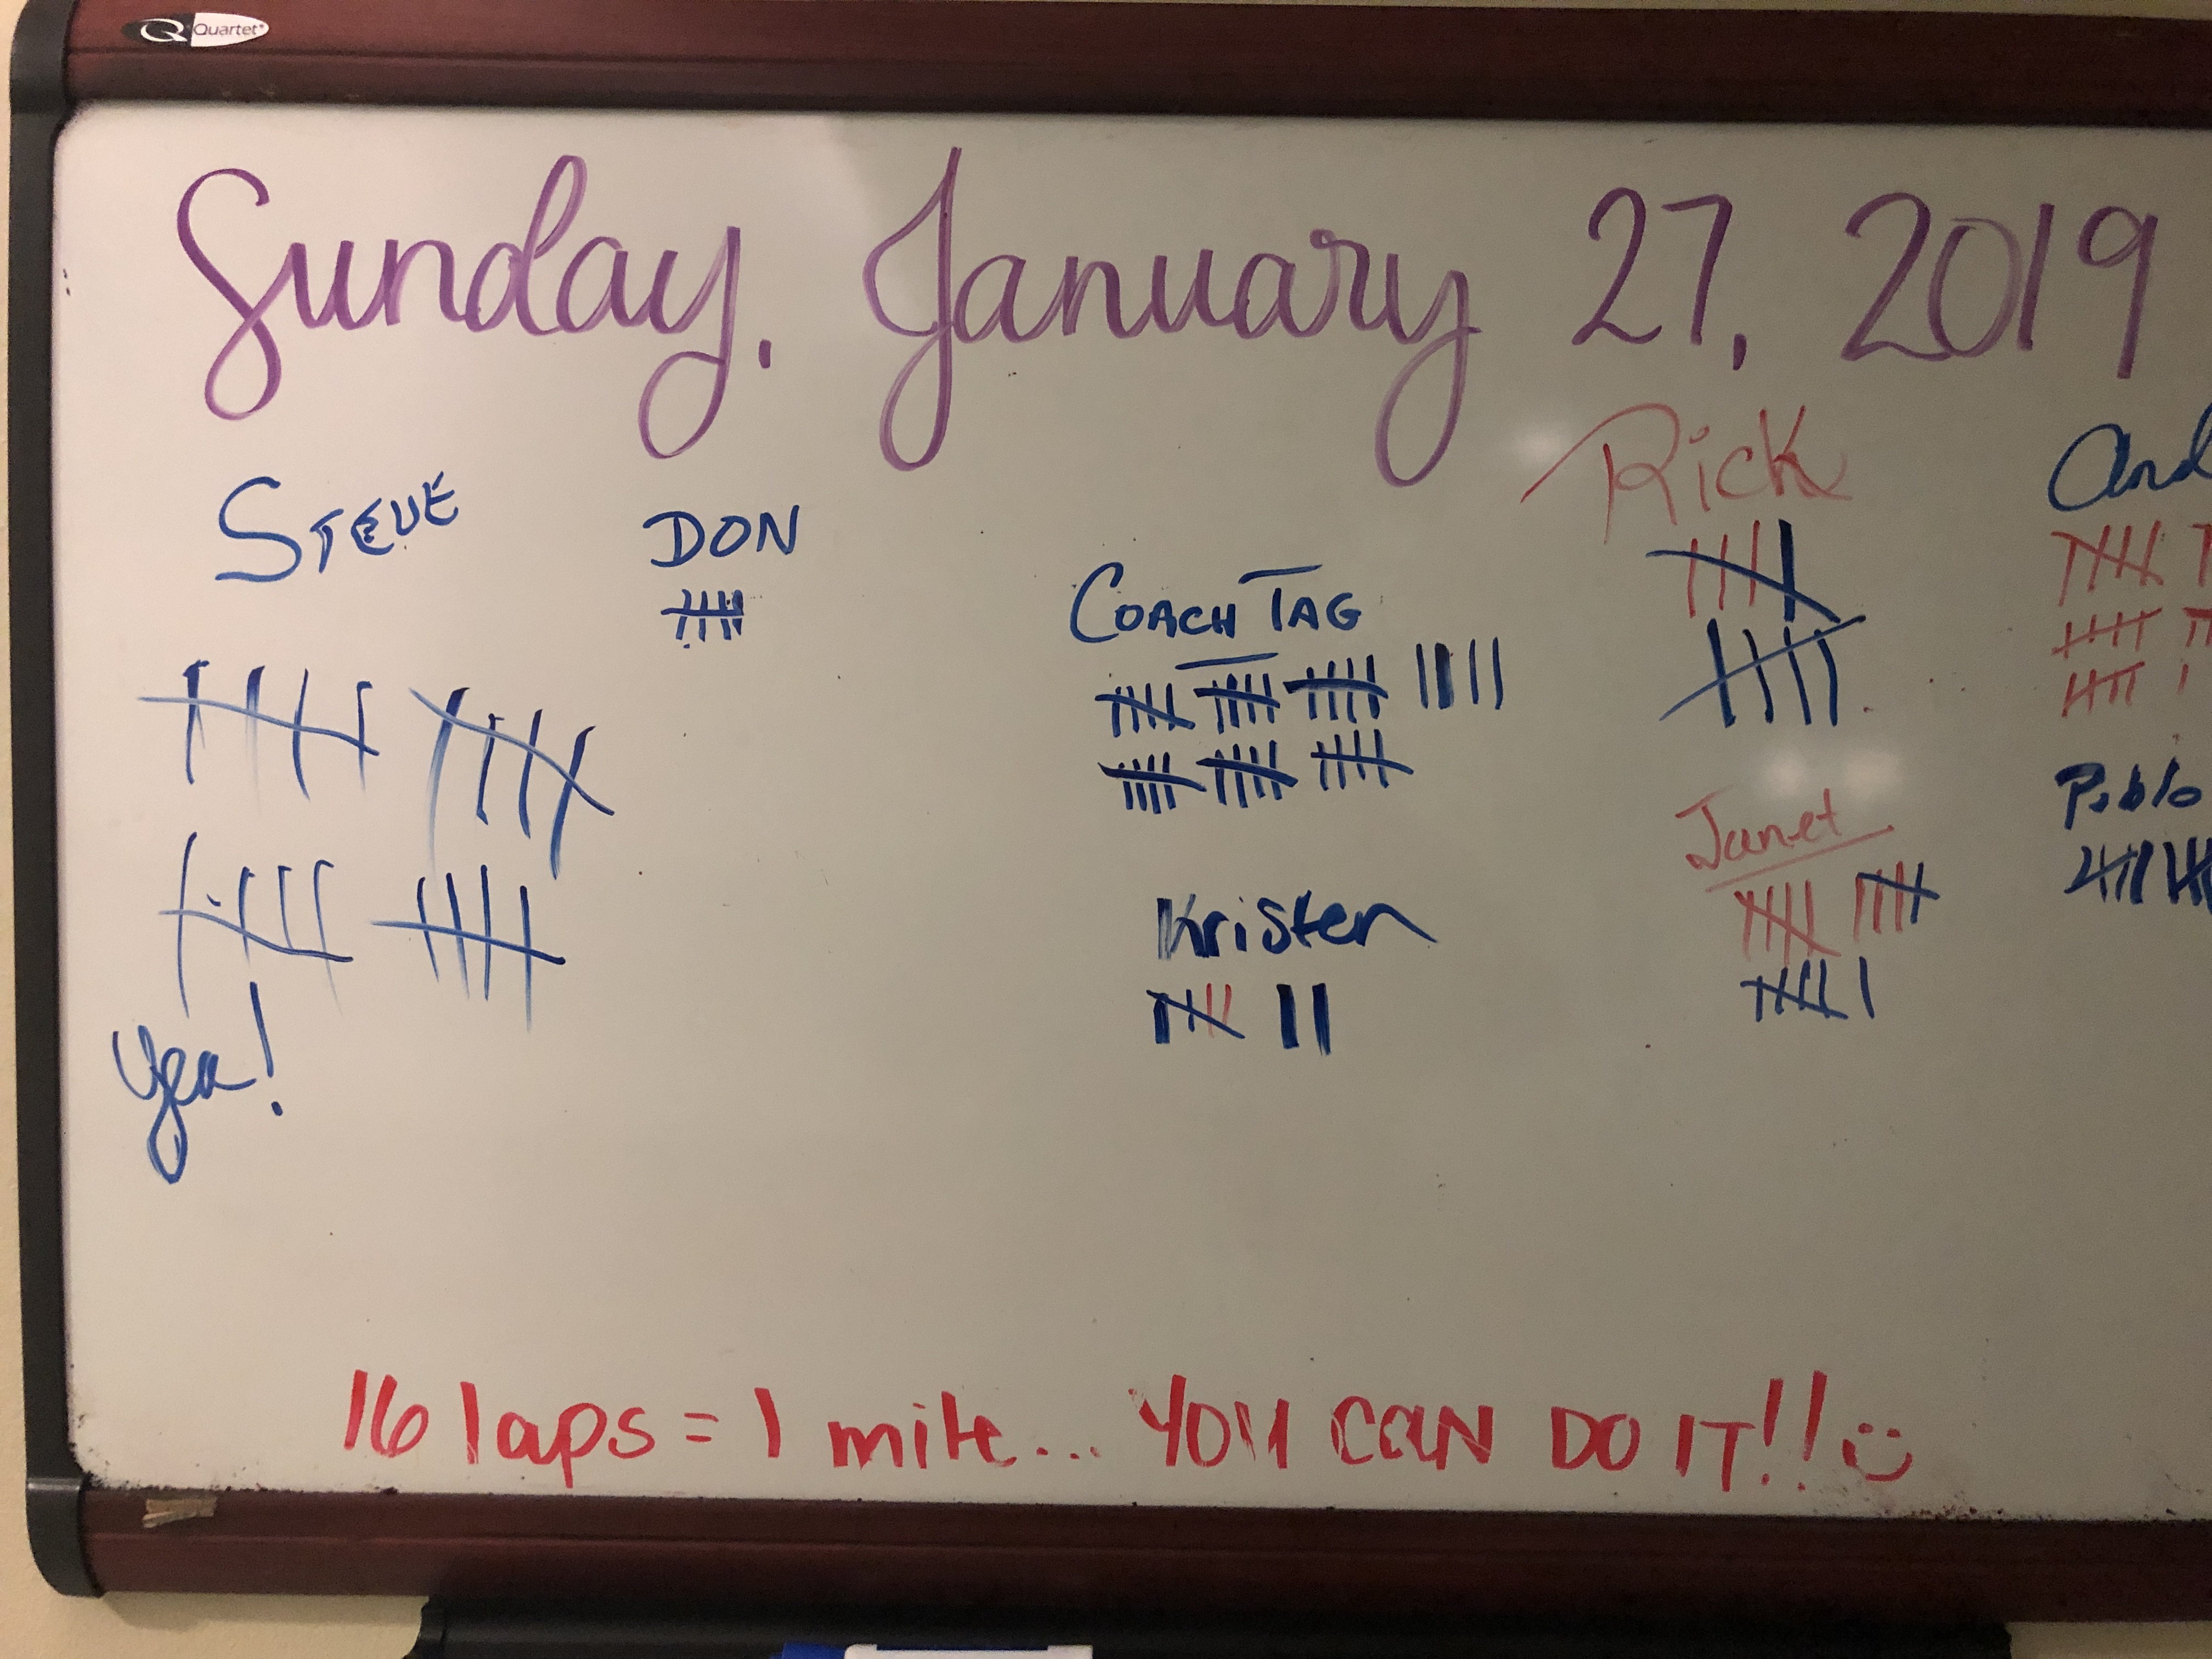 Quartet
Sunday, January 27, 2019
STEVE
DON
COACH TAG
Rick
Janet
Pablo
Kristen
Yea!
16 laps = 1 mile... YOU CAN DO IT!!